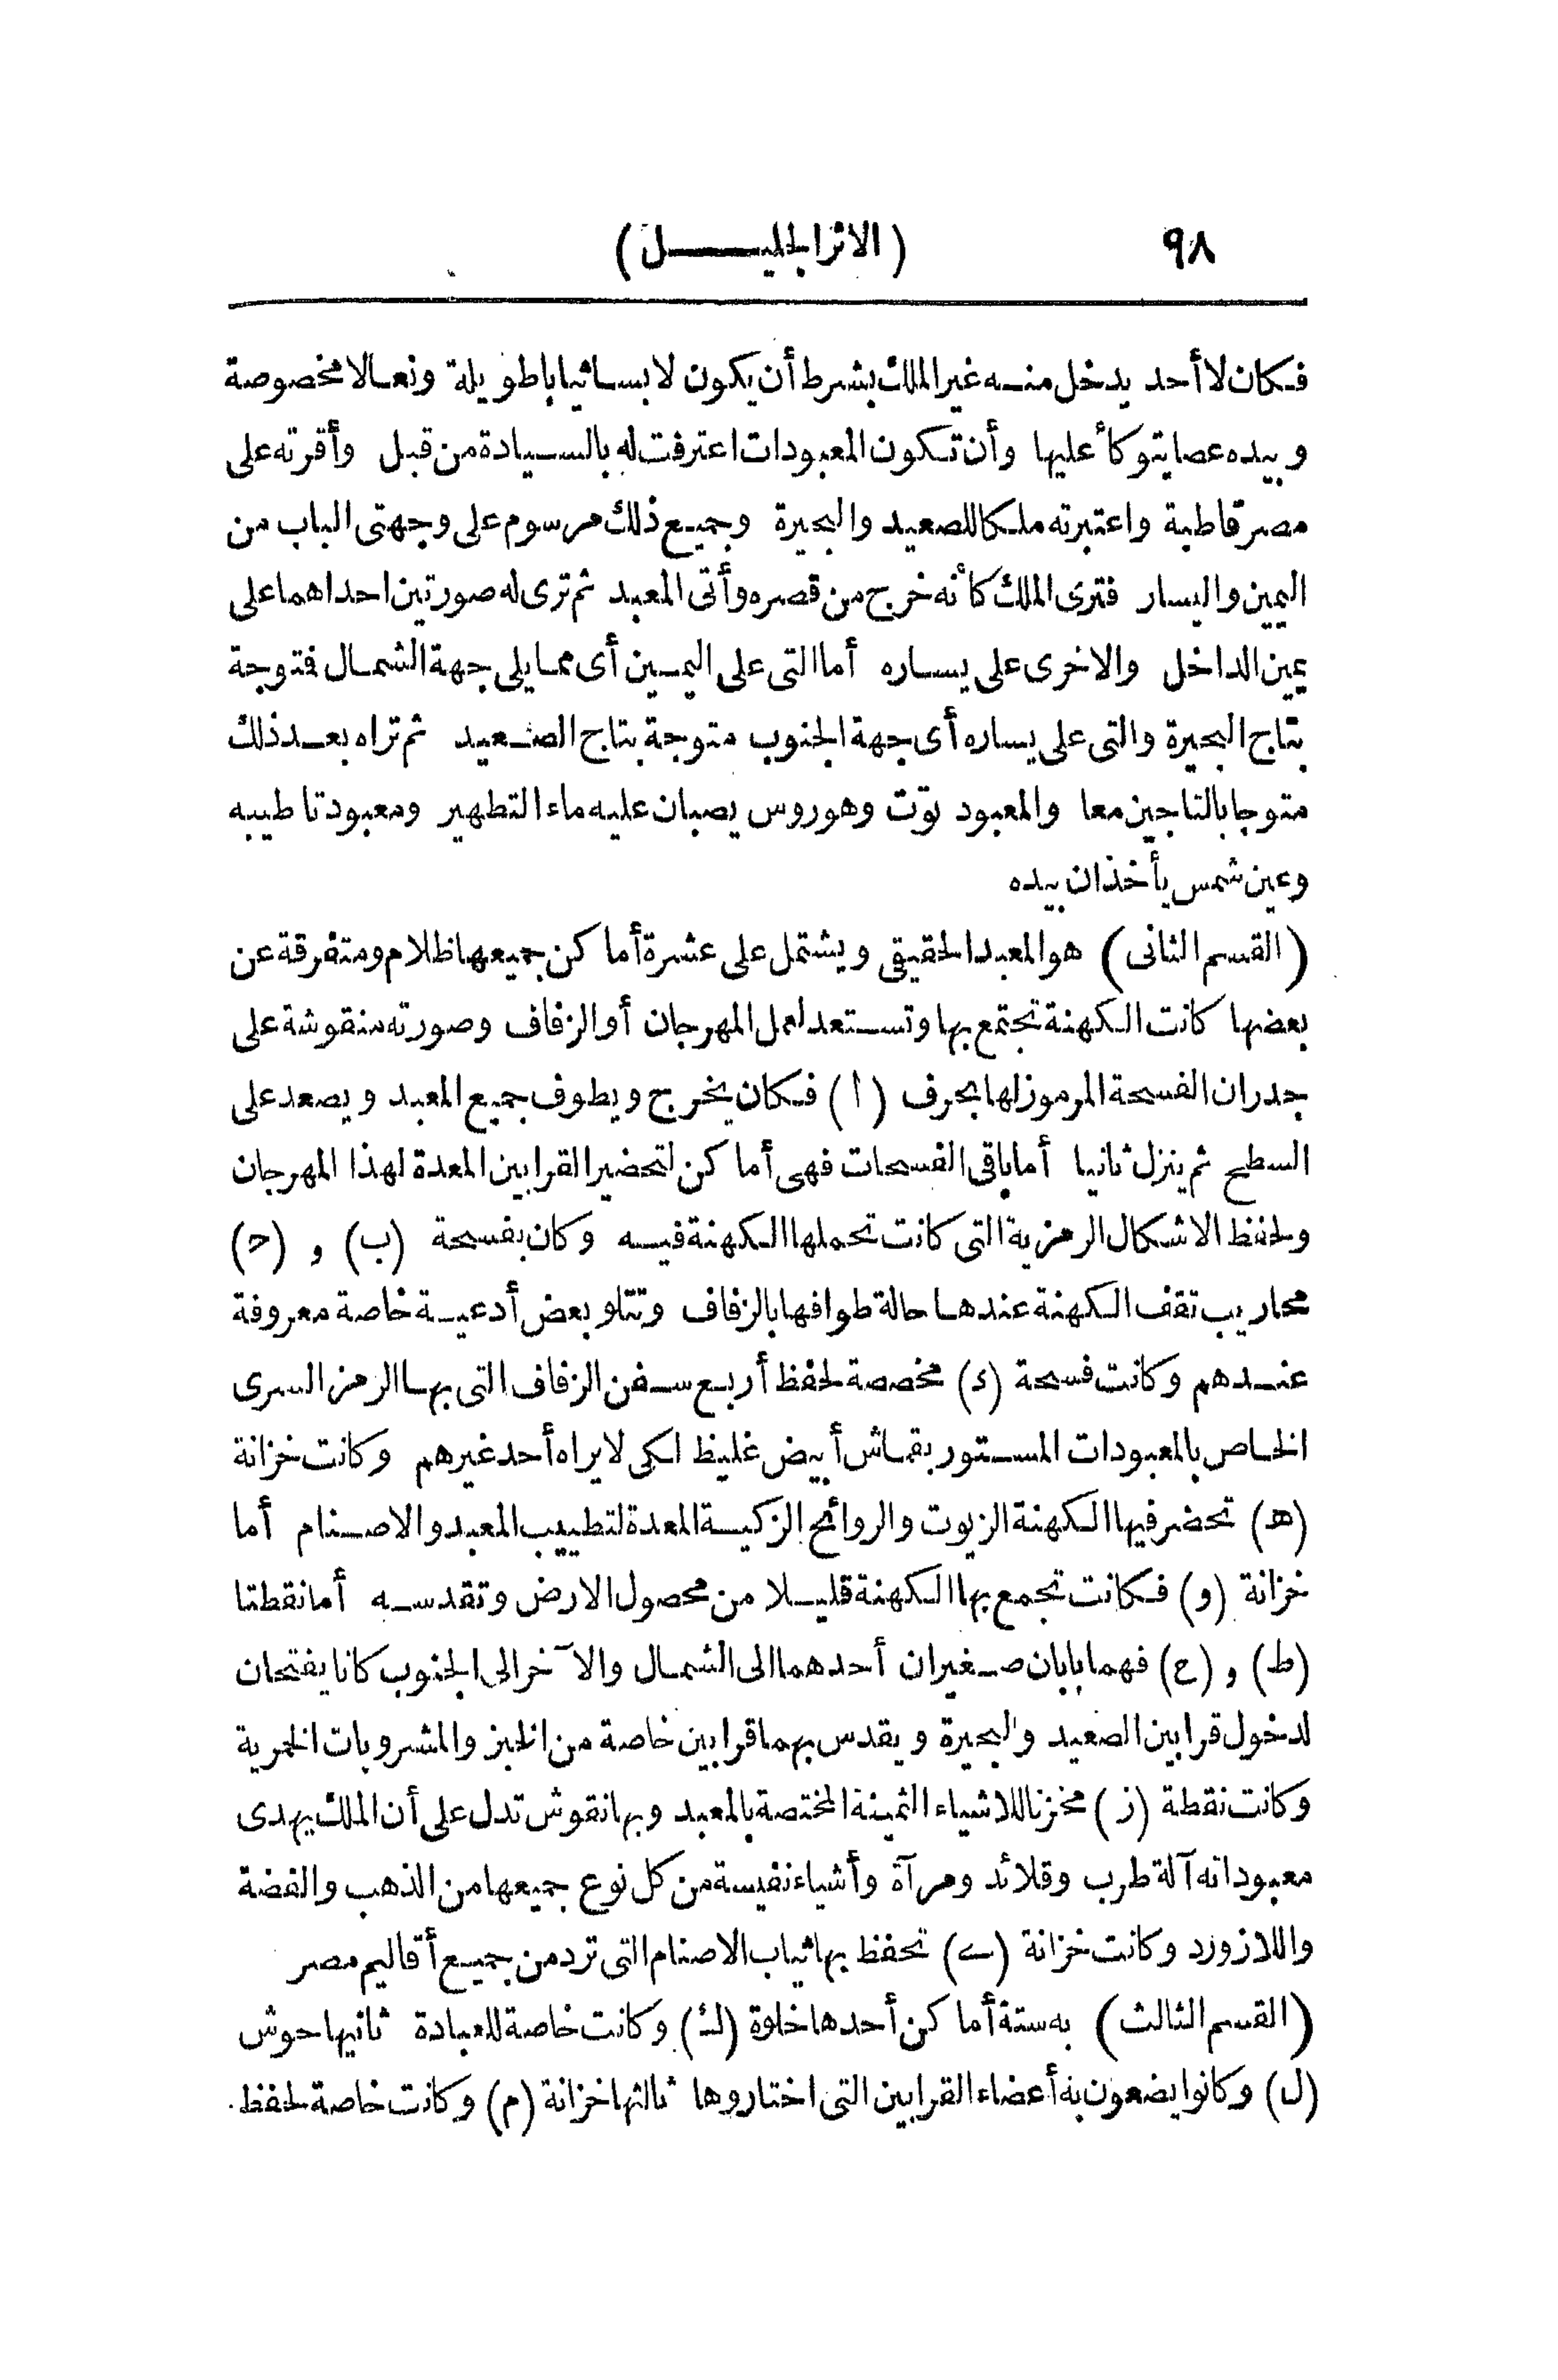 ٩٨ (الاثر الجليل)
فكان لا أحد يدخل منه غير الملك بشرط أن يكون لابسا ثيابا طويلة ونعالا مخصوصة
وبيده عصا يتوكأ عليها وأن تكون المعبودات اعترفت له بالسيادة من قبل وأقرته على
مصر قاطبة واعتبرته ملكا للصعيد والبحيرة وجميع ذلك مرسوم على وجهتى الباب من
اليمين واليسار فترى الملك كأنه خرج من قصره وأتى المعبد ثم ترى له صورتين احداهما على
يمين الداخل والاخرى على يساره أما التى على اليمين أى مما يلى جهة الشمال فتوجة
بتاج البحيرة والتى على يساره أى جهة الجنوب متوجة بتاج الصعيد ثم تراه بعد ذلك
متوجا بالتاجين معا والمعبود توت وهوروس يصبان عليه ماء التطهير ومعبودتا طيبه
وعين شمس يأخذان بيده
(القسم الثانى) هو المعبد الحقيقى ويشتمل على عشرة أماكن جميعها ظلام ومتفرقة عن
بعضها كانت الكهنة تجتمع بها وتستعد لعمل المهرجان أو الزفاف وصورته منقوشة على
جدران الفسحة المرموز لها بحرف (أ) فكان يخرج ويطوف جميع المعبد ويصعد على
السطح ثم ينزل ثانيا أما باقى الفسحات فهى أماكن لتحضير القرابين المعدة لهذا المهرجان
ولحفظ الاشكال الرمزية التى كانت تحملها الكهنة فيه وكان بفسحة (ب) و (ح)
محاريب تقف الكهنة عندها حالة طوافها بالزفاف وتتلو بعض أدعية خاصة معروفة
عندهم وكانت فسحة (د) مخصصة لحفظ أربع سفن الزفاف التى بها الرمز السرى
الخاص بالمعبودات المستور بقماش أبيض غليظ لكى لا يراه أحد غيرهم وكانت خزانة
(ه) تحضر فيها الكهنة الزيوت والروائح الزكية المعدة لتطييب المعبد والاصنام أما
خزانة (و) فكانت تجمع بها الكهنة قليلا من محصول الارض وتقدسه أما نقطتا
(ط) و (ح) فهما بابان صغيران أحدهما الى الشمال والآخر الى الجنوب كانا يفتحان
لدخول قرابين الصعيد والبحيرة ويقدس بهما قرابين خاصة من الخبز والمشروبات الخمرية
وكانت نقطة (ز) مخزنا للاشياء الثمينة المختصة بالمعبد وبها نقوش تدل على أن الملك يهدى
معبوداته آلة طرب وقلائد ومرآة وأشياء نفيسة من كل نوع جميعها من الذهب والفضة
واللازورد وكانت خزانة (ے) تحفظ بها ثياب الاصنام التى ترد من جميع أقاليم مصر
(القسم الثالث) به ستة أماكن أحدها خلوة (ك) وكانت خاصة للعبادة ثانيها حوش
(ل) وكانوا يضعون به أعضاء القرابين التى اختاروها ثالثها خزانة (م) وكانت خاصة لحفظ